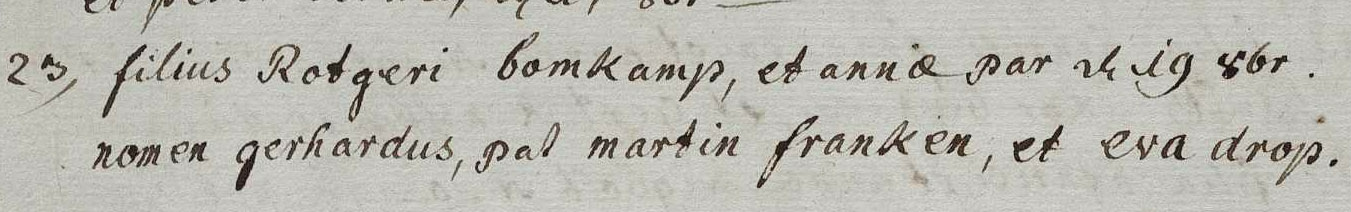 et peter
23, filius Rotgeri bomkamp, et annæ par d 19 8br.
nomen gerhardus, pat martin franken, et eva drop.